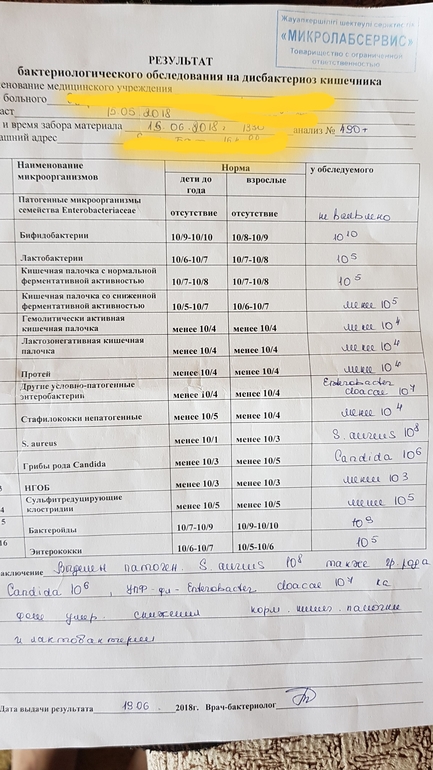 Жауапкершілігі шектеулі серіктестік
«МИКРОЛАБСЕРВИС»
Товарищество с ограниченной
ответственностью
РЕЗУЛЬТАТ
бактериологического обследования на дисбактериоз кишечника
енование медицинского учреждения
больного
аст 15.05.2018
и время забора материала 15.06.2018г 1330 анализ № 490+
ашний адрес
Наименование микроорганизмов Норма у обследуемого
дети до года взрослые
Патогенные микроорганизмы семейства Enterobacteriaceae отсутствие отсутствие не выявлено
Бифидобактерии 10/9-10/10 10/8-10/9 10 10
Лактобактерии 10/6-10/7 10/7-10/8 10 5
Кишечная палочка с нормальной ферментативной активностью 10/7-10/8 10/7-10/8 10 5
Кишечная палочка со сниженной ферментативной активностью 10/5-10/7 10/6-10/7 менее 10 5
Гемолитически активная кишечная палочка менее 10/4 менее 10/4 менее 10 4
Лактозонегативная кишечная палочка менее 10/4 менее 10/4 менее 10 4
Протей менее 10/4 менее 10/4 менее 10 4
Другие условно-патогенные энтеробактерии менее 10/4 менее 10/4 Enterobacter cloacae 10 7
Стафилококки непатогенные менее 10/5 менее 10/4 менее 10 4
S. aureus менее 10/1 менее 10/3 S. aureus 10 8
Грибы рода Candida менее 10/3 менее 10/5 Candida 10 6
3 НГОБ менее 10/3 менее 10/3 менее 10 3
4 Сульфитредуцирующие клостридии менее 10/5 менее 10/5 менее 10 5
5 Бактеройды 10/7-10/9 10/9-10/10 10 9
16 Энтерококки 10/6-10/7 10/5-10/6 10 5
аключение Выделен патоген. S. aureus 10 8 также гр. рода
Candida 10 6, УПФ-фл- Enterobacter cloacae 10 7 на
фоне умер. снижения норм. кишеч. палочки
и лактобактерий
Дата выдачи результата 19.06. 2018г. Врач-бактериолог